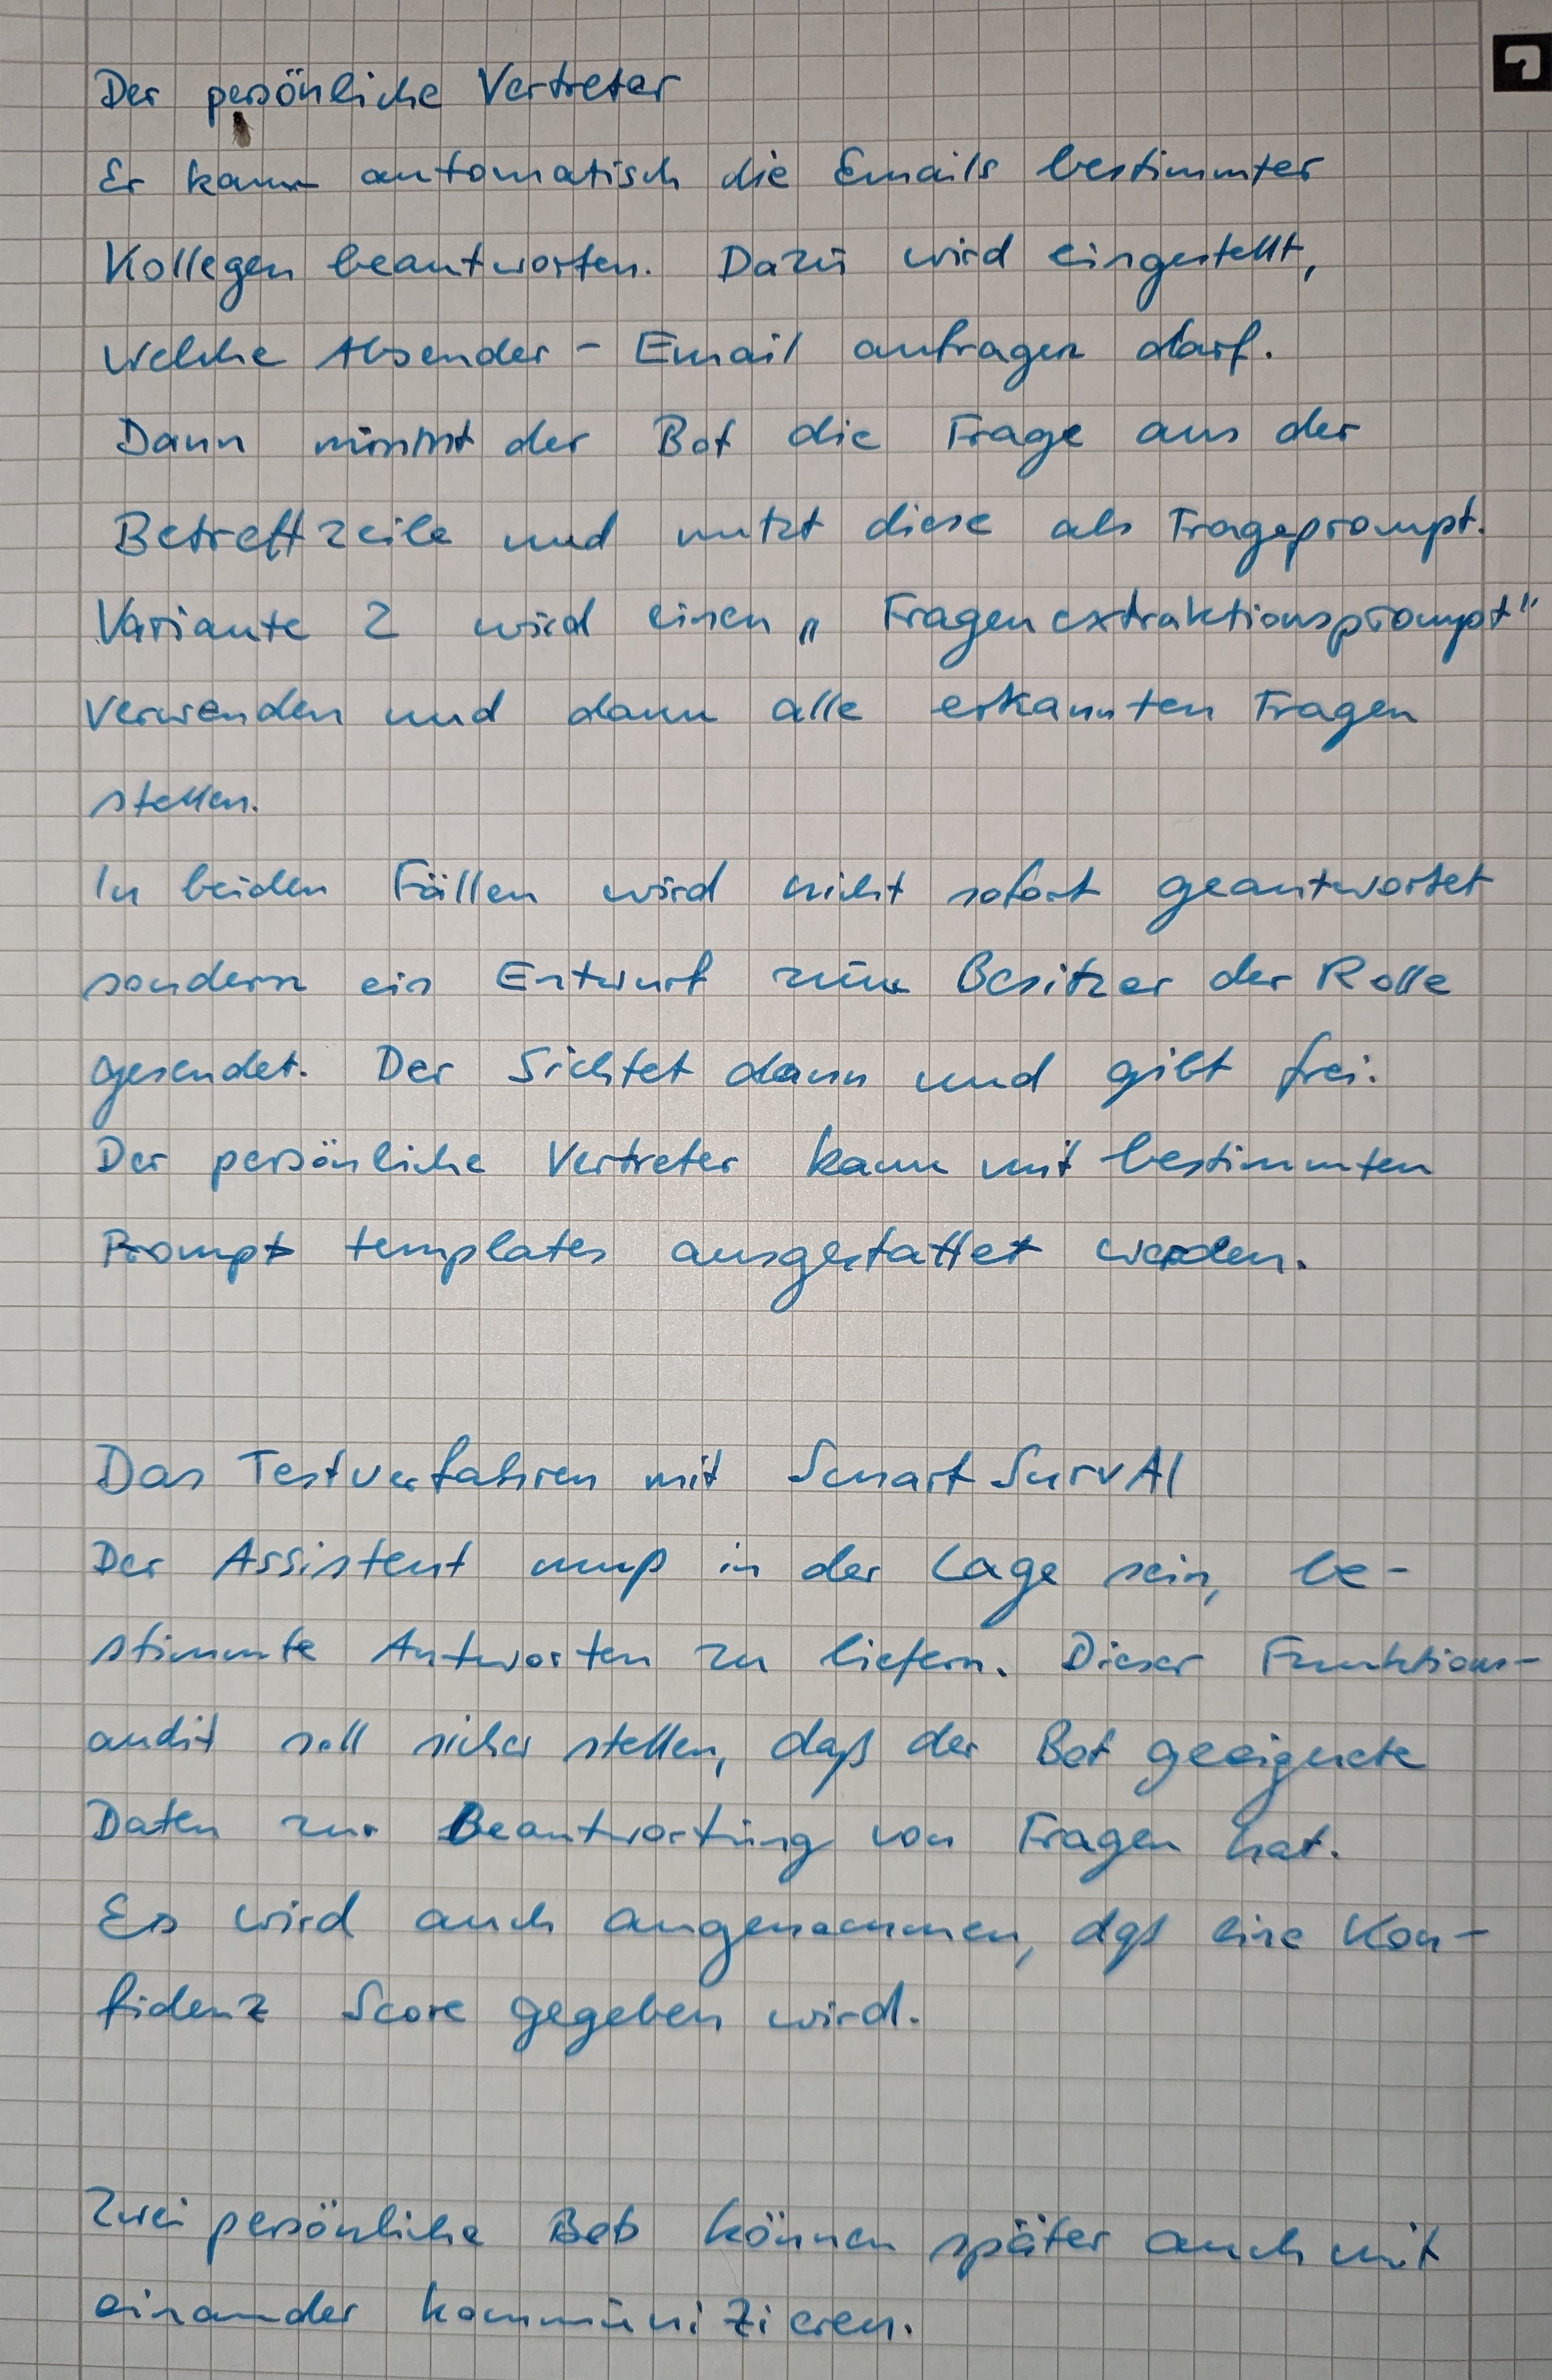 Der persönliche Vertreter
Er kann automatisch die Emails bestimmter
Kollegen beantworten. Dazu wird eingestellt,
welche Absender - Email anfragen darf.
Dann nimmt der Bot die Frage aus der
Betreffzeile und nutzt diese als Frageprompt.
Variante 2 wird einen „Fragenextraktionsprompt"
verwenden und dann alle erkannten Fragen
stellen.
In beiden Fällen wird nicht sofort geantwortet
sondern ein Entwurf zum Besitzer der Rolle
gesendet. Der Sichtet dann und gibt frei.
Der persönliche Vertreter kann mit bestimmten
Prompt templates ausgestattet werden.
Das Testverfahren mit SmartSurvAI
Der Assistent muß in der Lage sein, be-
stimmte Antworten zu liefern. Dieser Funktions-
audit soll sicher stellen, daß der Bot geeignete
Daten zur Beantwortung von Fragen hat.
Es wird auch angenommen, daß eine Kon-
fidenz Score gegeben wird.
Zwei persönliche Bots können später auch mit
einander kommunizieren.